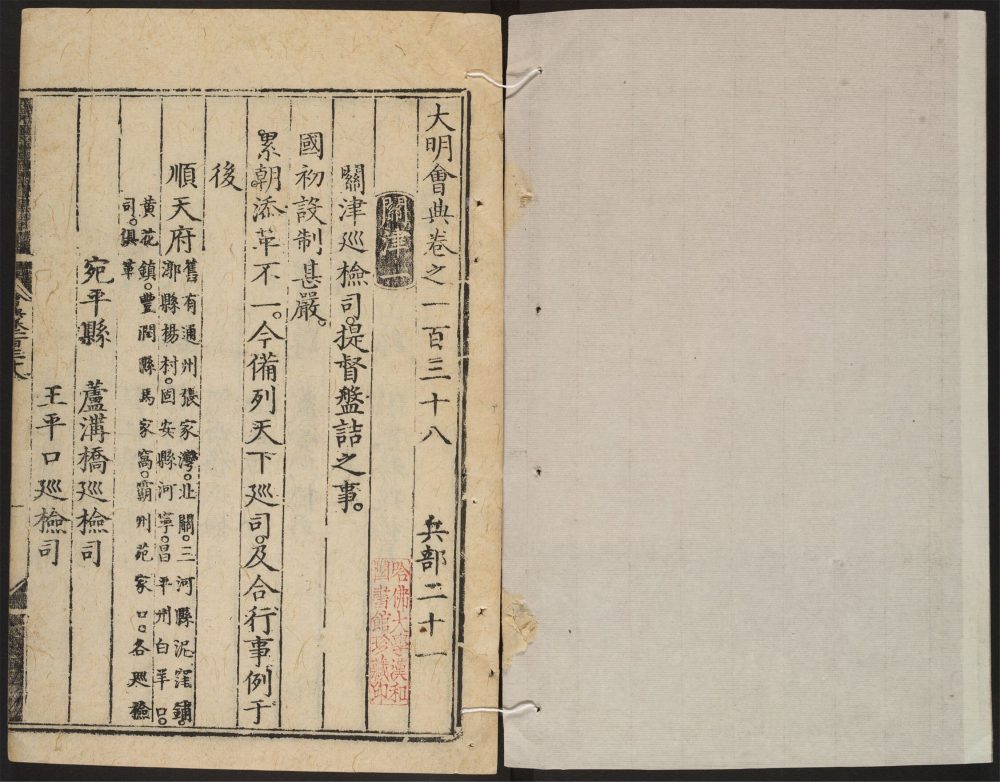 大明會典卷之一百三十八　兵部二十一
關津一
關津廵檢司。提督盤詰之事。
國初設制甚嚴。
累朝添革不一。今備列天下廵司。及合行事例于
後
順天府
舊有通州張家灣。北關。三河縣泥窪鋪。
漷縣楊村。固安縣河寧。昌平州白羊口。
黄花鎮。豐潤縣馬家窩。霸州苑家口。各廵檢
司。俱革
宛平縣　蘆溝橋廵檢司
王平口廵檢司
哈佛大學漢和
圖書館珍藏印